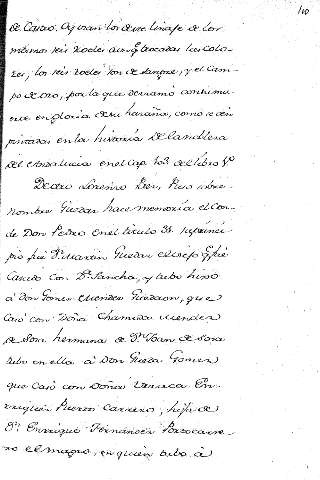 110
de Castro. Oy usan los de este linaje de los
mismos seis roeles aunq trocadas las colo-
res, los seis roeles son de sangre, y el cam-
po de oro, por la que derramó continua-
en gloria de su hazaña, como se ven
pintados en la historia de la nobleza
del Andalucia en el cap. 103 del libro 1º
De otro Lorenzo sobre-
nombre Guzman hace memoria el Con-
de Don Pedro en el titulo 31 su princi-
pio fué Dn. Martin Guzman el viejo q. fué
Casado con Dª. Sancha, y tubo hijo
á Don Gomez Mendez Guedaon, que
casó con Doña Chamoa Mendez
de Sousa hermana de Dn. Joan de Sosa
tubo en ella á Don Gueda Gomez
que casó con Doña Urraca En-
riquez Puerto Carrero, hija de
Dn. Enrrique Fernandez Portocarre-
ro el magro, en quien tubo á